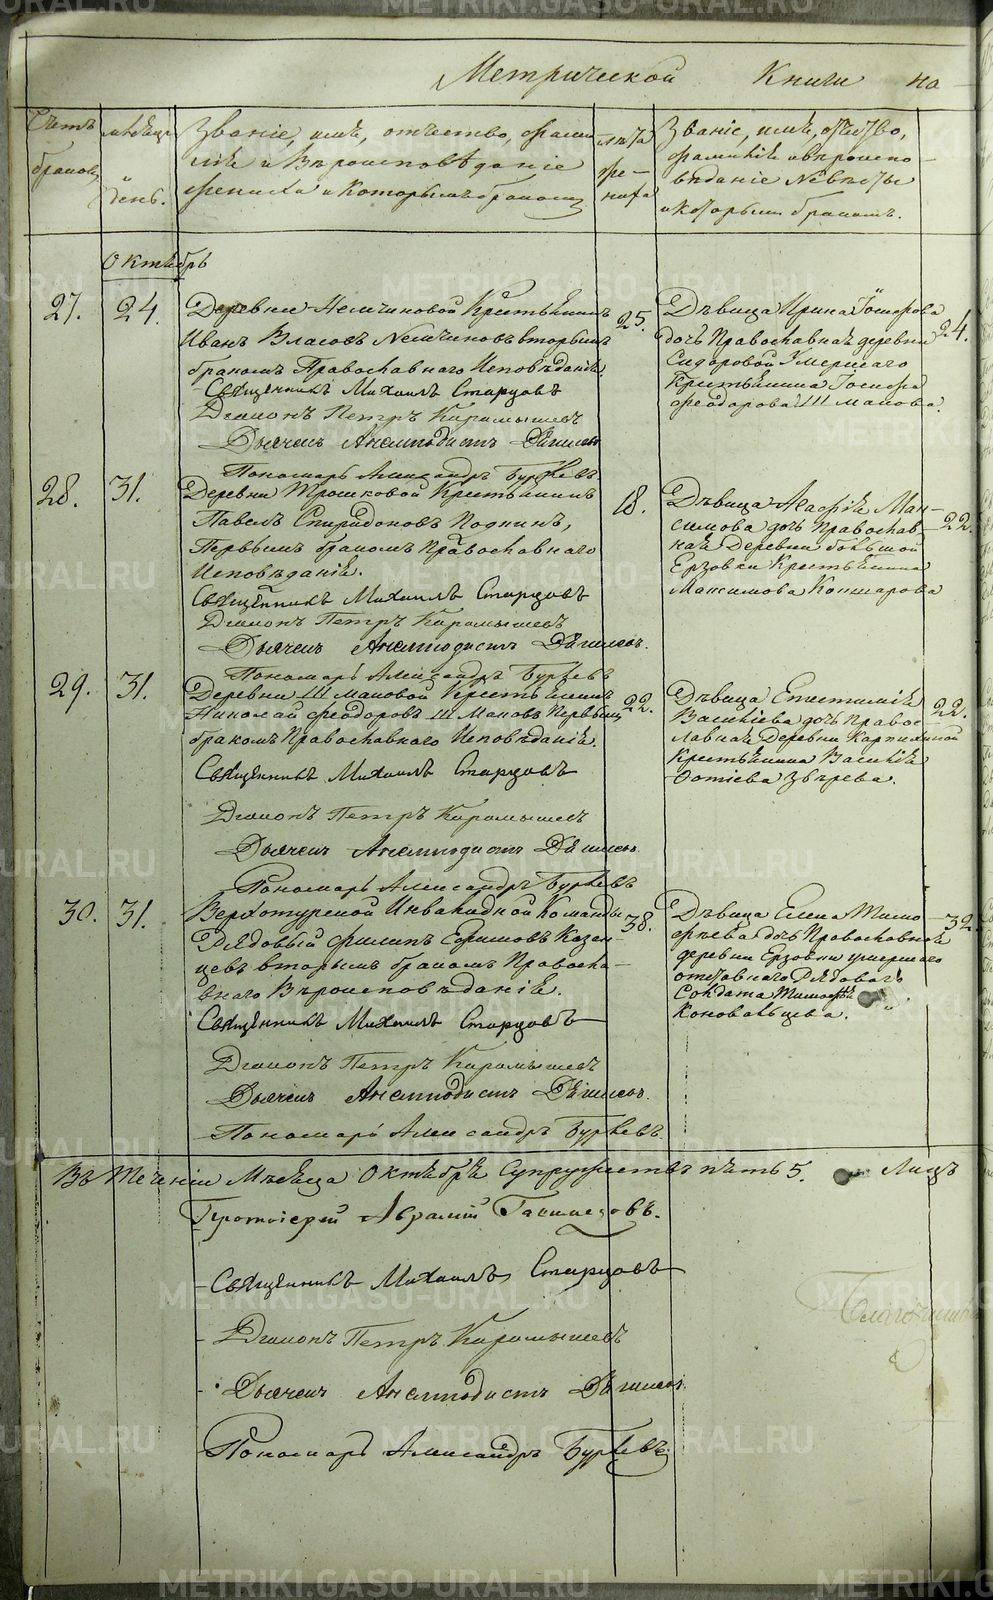 Метрической Книги на
Счетъ браковъ
мѣсяцъ и день.
Званіе, имѣ, отчество, фами
лія и Вѣроисповѣданіе
жениха и которымъ бракомъ
лѣта же-
ниха
Званіе, имѣ, отчество,
фамилія и вѣроиспо-
вѣданіе Невѣсты
и которымъ бракомъ.
Октябрь
27. 24. Деревни Немчиновой Крестьянинъ
Иванъ Власовъ Немчиновъ вторымъ
бракомъ Православнаго Исповѣданія.
Священникъ Михаилъ Старцовъ
Діаконъ Петръ Карамышевъ
Дьячекъ Анемподистъ
Пономарь Александръ
25.
Дѣвица Ирина Іосифова
дочь Православная деревни
Сидоровой Умершаго
Крестьянина Іосифа
Феодорова Шмакова.
24.
28. 31. Деревни Трошковой Крестьянинъ
Павелъ Спиридоновъ
Первымъ бракомъ Православнаго
Исповѣданія.
Священникъ Михаилъ Старцовъ
Діаконъ Петръ Карамышевъ
Дьячекъ Анемподистъ
Пономарь Александръ
18.
Дѣвица Агафія Мак-
симова дочь Православ-
ная Деревни большой
Ерзовки Крестьянина
Максимова
22.
29. 31. Деревни Шмаковой Крестьянинъ
Николай Феодоровъ Шмаковъ Первымъ
бракомъ Православнаго Исповѣданія.
Священникъ Михаилъ Старцовъ
Діаконъ Петръ Карамышевъ
Дьячекъ Анемподистъ
Пономарь Александръ
22.
Дѣвица Епистимія
Васильева дочь Правос-
лавная Деревни
Крестьянина Василія
Фотіева Звѣрева.
22.
30. 31. Верхотурской Инвалидной Команды
Рядовый Филипъ Ефимовъ Казан-
цевъ вторымъ бракомъ Правосла-
внаго Вѣроисповѣданія.
Священникъ Михаилъ Старцовъ
Діаконъ Петръ Карамышевъ
Дьячекъ Анемподистъ
Пономарь Александръ
38.
Дѣвица Елена Тимо
феева дочь Православная
деревни Ерзовки умершаго
отставнаго Рядоваго
Солдата Тимофѣя
Коновальцева.
32.
Въ Теченіи Мѣсяца Октября Супружествъ пять 5. Лицъ
Протоіерей Аврамій
Священникъ Михаилъ Старцовъ
Діаконъ Петръ Карамышевъ
Дьячекъ Анемподистъ
Пономарь Александръ
METRIKI.GASO-URAL.RU